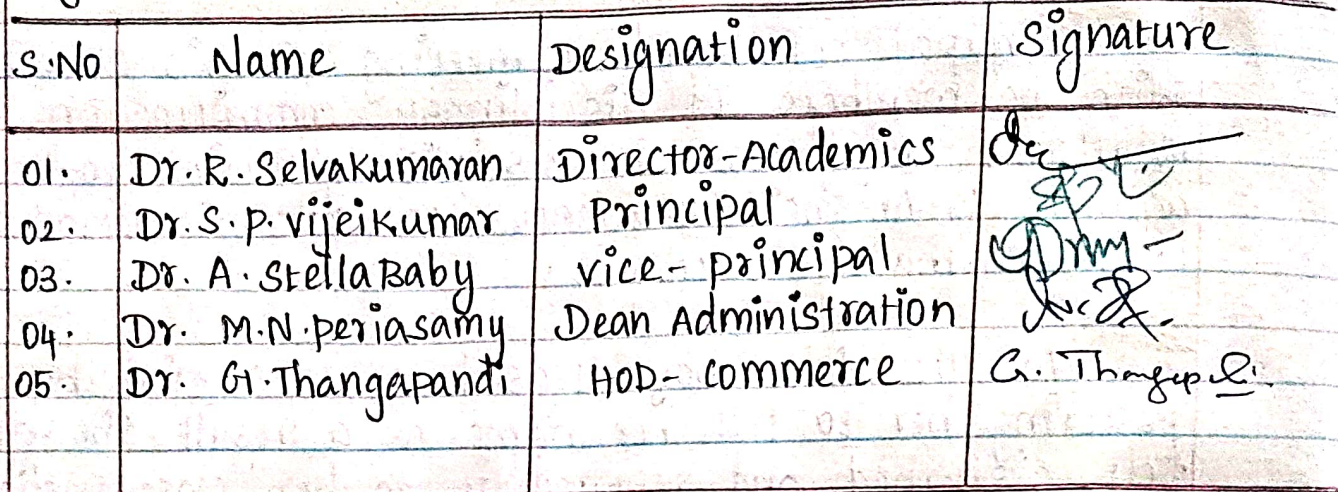 S.No Name Designation Signature
01. Dr. R. Selvakumaran Director-Academics
02. Dr. S. P. Vijeikumar Principal
03. Dr. A. Stella Baby Vice-principal
04. Dr. M.N. periasamy Dean Administration
05. Dr. G. Thangapandi HOD- Commerce G. Thangap